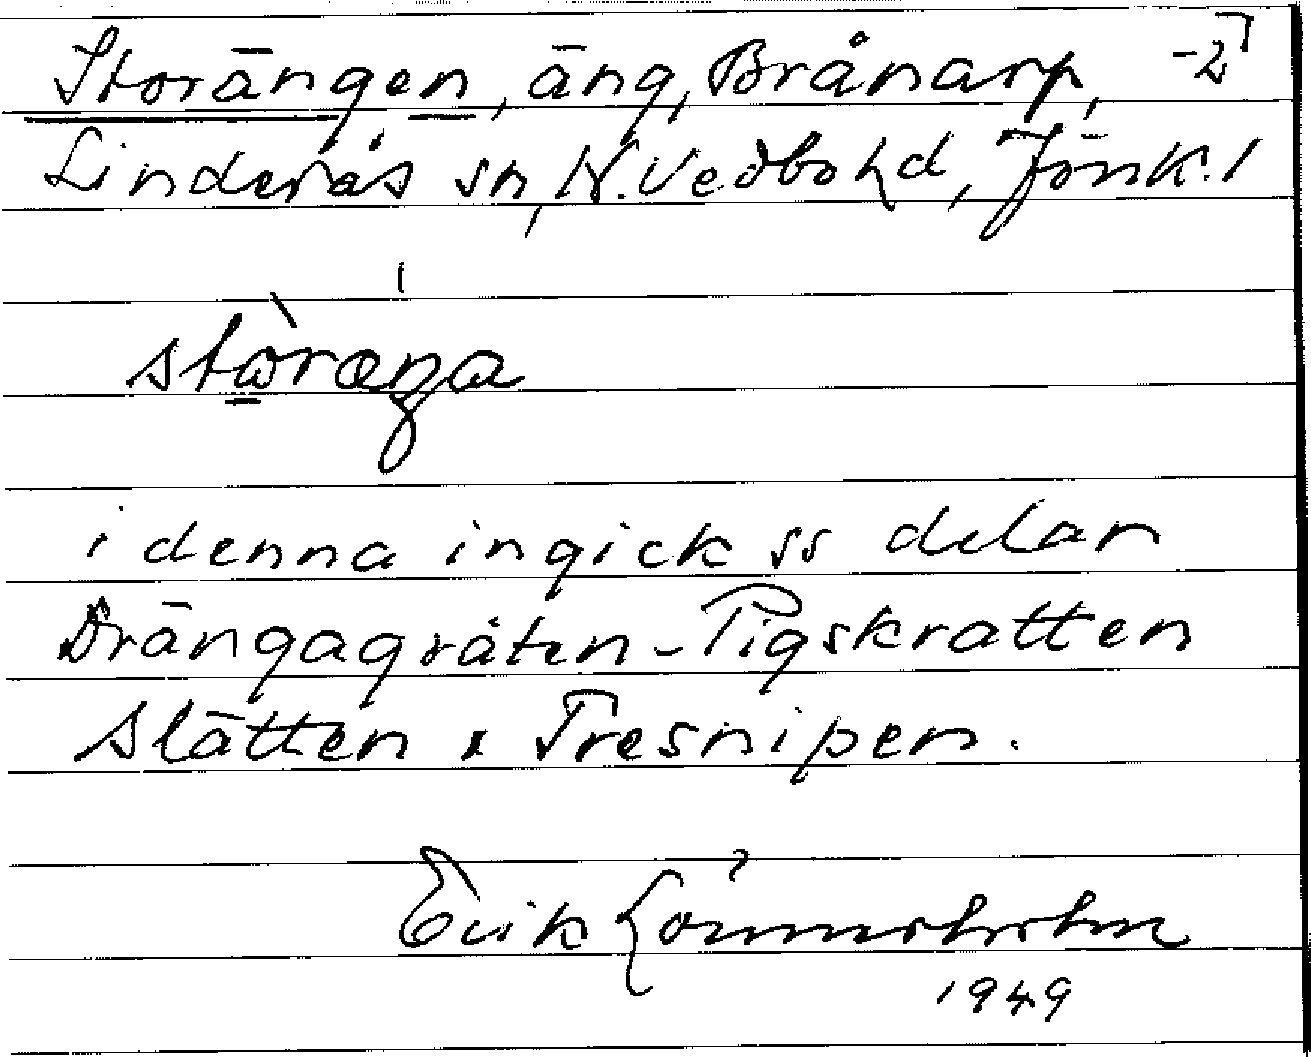 Storängen, äng, Brånarp, -27
Linderås sn, N. Vedbo hd, Jönk. l
i denna ingick ss delar
Drängagråten - Pigskratten
Slätten x Tresnipen.
Erik
1949